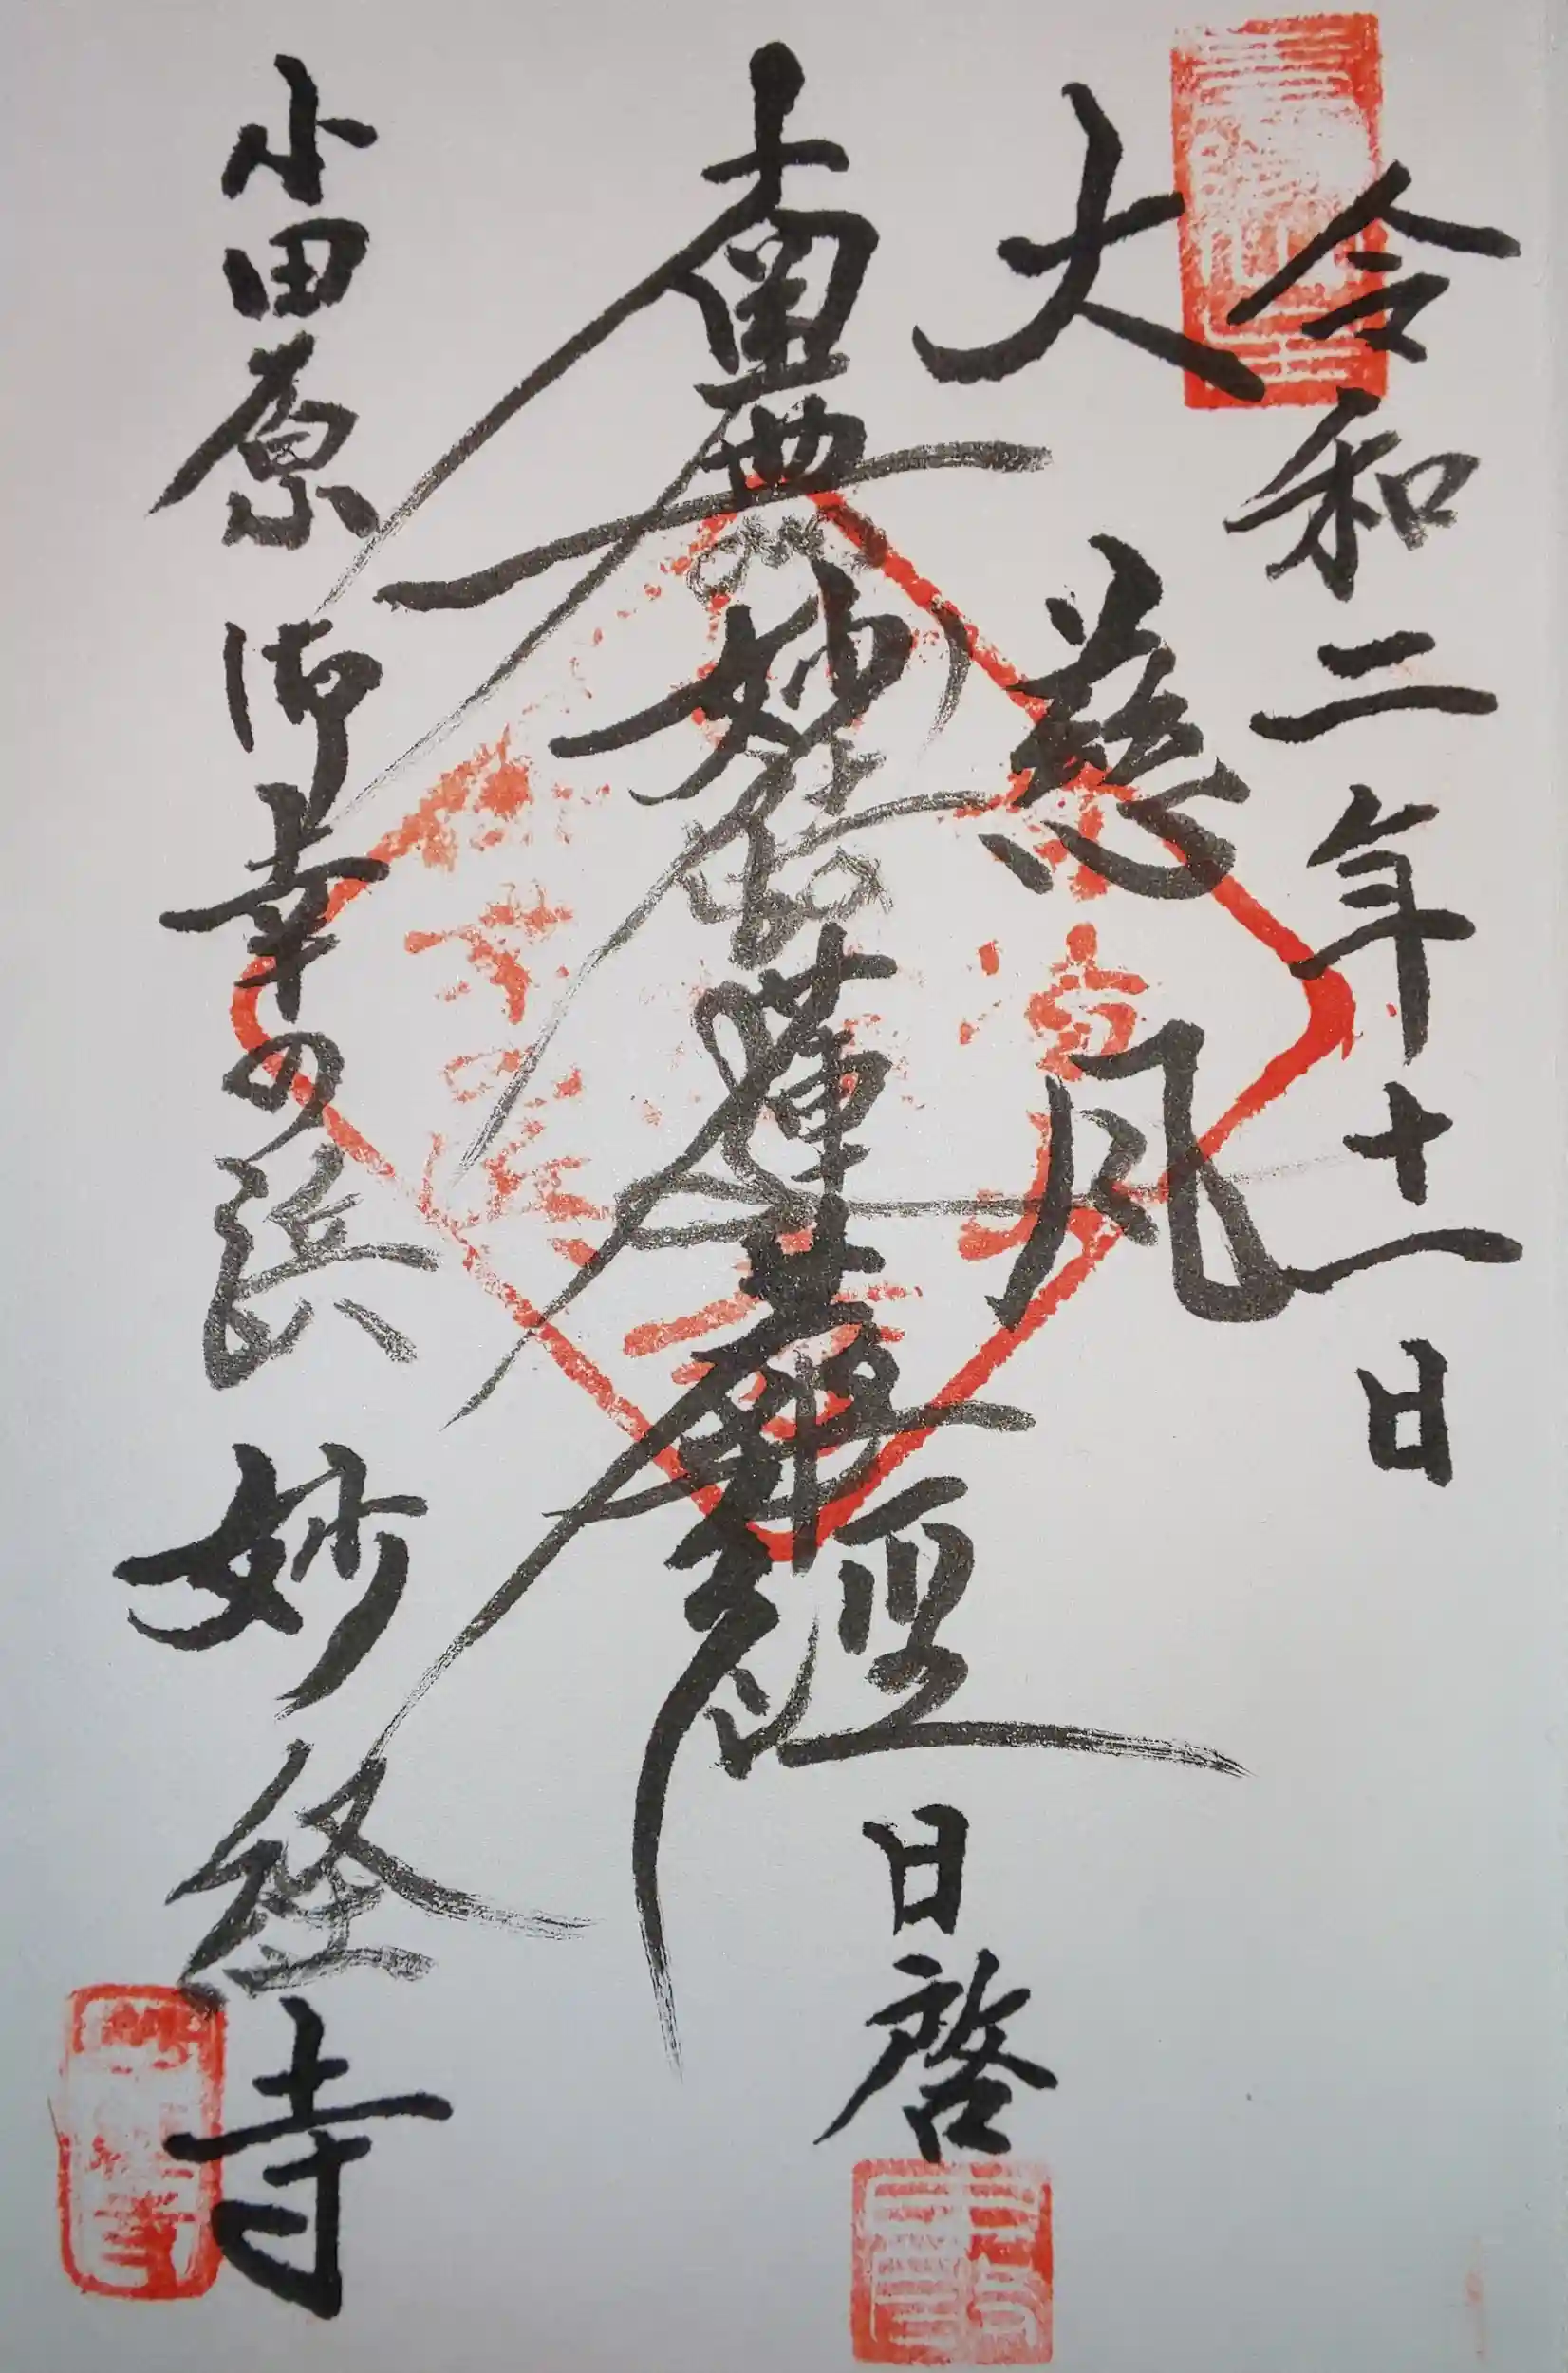 令和二年十一日
大慈風
南無妙法蓮華経
日啓
小田原御幸の浜
妙経寺